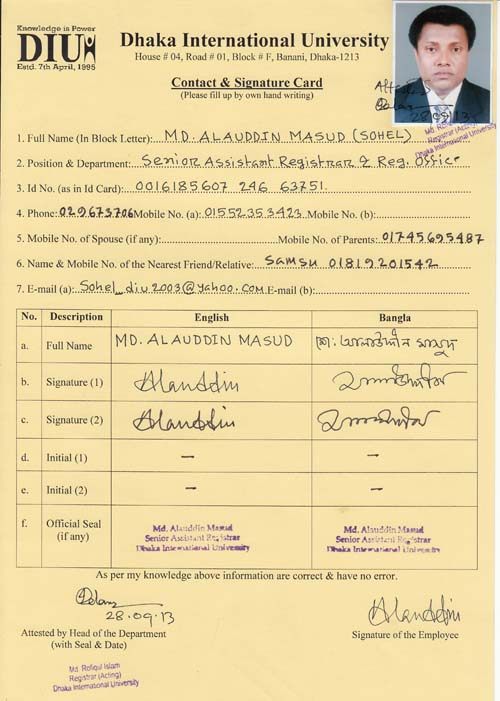 Knowledge is Power
DIU
Estd. 7th April, 1995
Dhaka International University
House # 04, Road # 01, Block # F, Banani, Dhaka-1213
Contact & Signature Card
(Please fill up by own hand writing)
28.09.13
Md. Rofiqul Islam
Registrar (Acting)
Dhaka International University
1. Full Name (In Block Letter): MD. ALAUDDIN MASUD (SOHEL)
2. Position & Department: Senior Assistant Registrar & Reg. Office
3. Id No. (as in Id Card): 0016185607 246 63751.
4. Phone: 029673706 Mobile No. (a): 01552353423 Mobile No. (b):
5. Mobile No. of Spouse (if any): Mobile No. of Parents: 01745695487
6. Name & Mobile No. of the Nearest Friend/Relative: Samsu 01819201542
7. E-mail (a): Sohel_diu2003@yahoo.com E-mail (b):
No. Description English Bangla
a. Full Name MD. ALAUDDIN MASUD মো: আলাউদ্দীন মাসুদ
b. Signature (1) Alauddin
c. Signature (2) Alauddin
d. Initial (1) – –
e. Initial (2) – –
f. Official Seal (if any)
Md. Alauddin Masud Md. Alauddin Masud
Senior Assistant Registrar Senior Assistant Registrar
Dhaka International University Dhaka International University
As per my knowledge above information are correct & have no error.
28.09.13 Alauddin
Attested by Head of the Department Signature of the Employee
(with Seal & Date)
Md. Rofiqul Islam
Registrar (Acting)
Dhaka International University